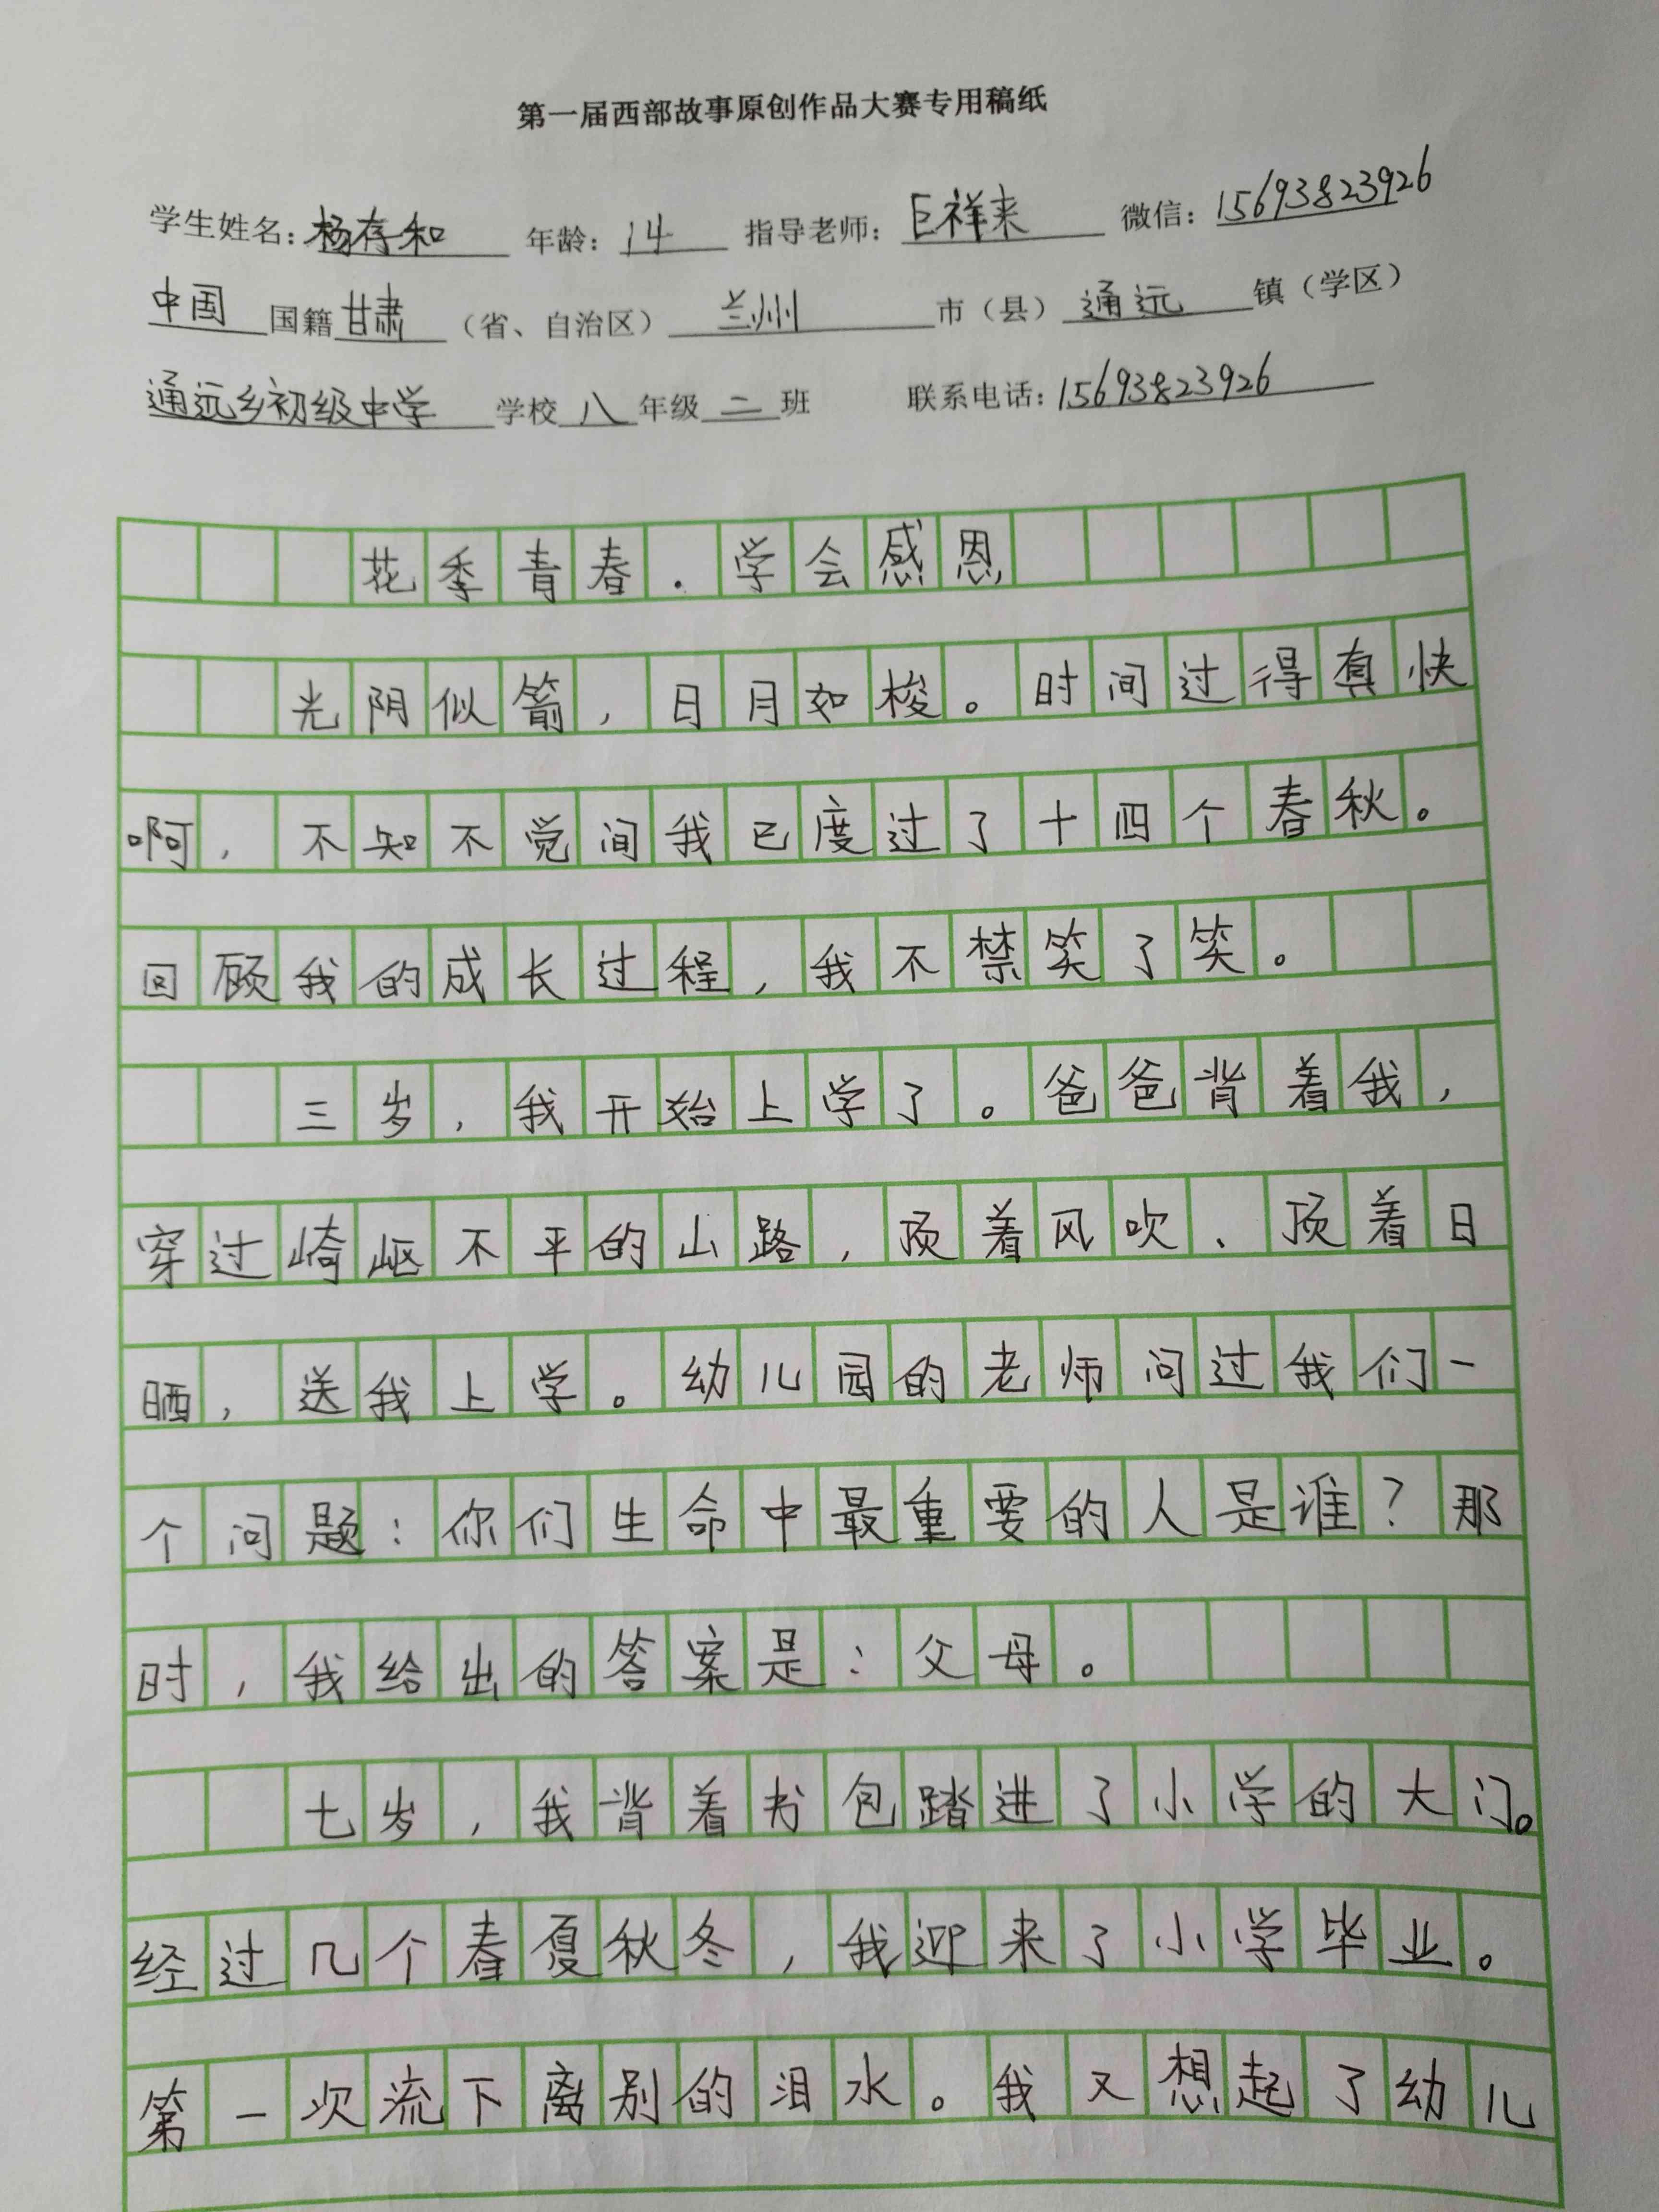 第一届西部故事原创作品大赛专用稿纸
学生姓名：杨存和 年龄：14 指导老师：巨祥来 微信：15693823926
中国国籍甘肃（省、自治区）兰州市（县）通远镇（学区）
通远乡初级中学学校八年级二班 联系电话：15693823926
花季青春.学会感恩
光阴似箭，日月如梭。时间过得真快
啊，不知不觉间我已度过了十四个春秋。
回顾我的成长过程，我不禁笑了笑。
三岁，我开始上学了。爸爸背着我，
穿过崎岖不平的山路，顶着风吹、顶着日
晒，送我上学。幼儿园的老师问过我们一
个问题：你们生命中最重要的人是谁？那
时，我给出的答案是：父母。
七岁，我背着书包踏进了小学的大门。
经过几个春夏秋冬，我迎来了小学毕业。
第一次流下离别的泪水。我又想起了幼儿